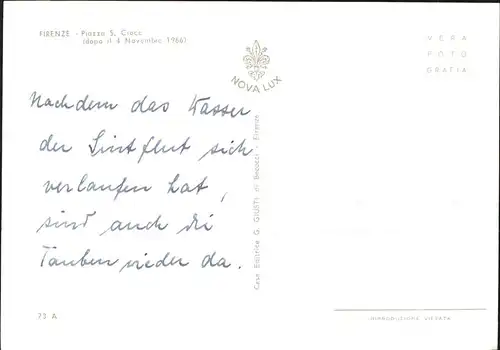 FIRENZE - Piazza S. Croce
(dopo il 4 Novembre 1966)
NOVA LUX
VERA
FOTO
GRAFIA
Nachdem das Wasser
der Sintflut sich
verlaufen hat,
sind auch die
Tauben wieder da.
Casa Editrice G. GIUSTI di Becocci - Firenze
23 A
RIPRODUZIONE VIETATA